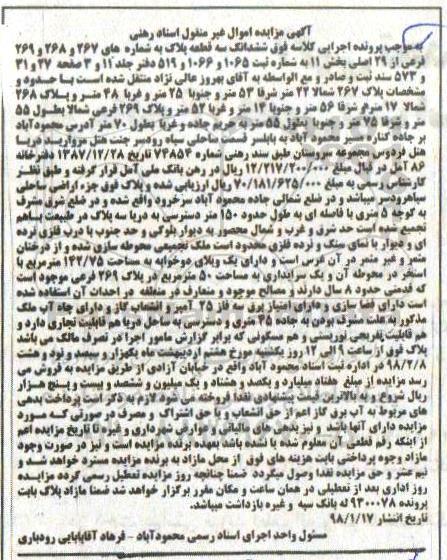 آگهی مزایده اموال غیر منقول اسناد رهنی
به موجب پرونده اجرایی کلاسه فوق ششدانگ سه قطعه پلاک به شماره های ۲۶۷ و ۲۶۸ و ۲۶۹
فرعی از ۲۹ اصلی بخش ۱۱ به شماره ثبت ۱۰۶۵ و ۱۰۶۶ و ۵۱۹ دفتر جلد ۱۱ و ۳ صفحه ۲۷ و ۳۱
و ۵۷۳ سند ثبت و صادر و مع الواسطه به آقای بهروز عالی نژاد منتقل شده است با حدود و
مشخصات پلاک ۲۶۷ شمالا ۲۲ متر شرقا ۵۳ متر و جنوبا ۲۵ متر و غربا ۴۸ متر و پلاک ۲۶۸
شمالا ۱۷ متر شرقا ۵۶ متر و جنوبا ۱۴ متر و غربا ۵۳ متر و پلاک ۲۶۹ فرعی شمالا بطول ۵۵
متر و شرقا ۷۵ متر و جنوبا بطول ۵۵ متر به حریم جاده و غربا بطول ۷۰ متر آدرس محمودآباد
بر جاده کناره محمود آباد به بابلسر قسمت ساحلی سیاه رودسر جنت هتل مروارید دریا
هتل فردوس مجموعه سروستان طبق سند رهنی شماره ۷۴۸۵۳ تاریخ ۱۳۸۷/۱۲/۲۸ دفترخانه
۸۶ آمل در قبال مبلغ ۱۲/۲۱۷/۲۰۰/۰۰۰ ریال در رهن بانک ملی آمل قرار گرفته و طبق نظر
کارشناس رسمی به مبلغ ۷۰/۱۸۱/۶۲۵/۰۰۰ ریال ارزیابی شده و پلاک فوق جزء اراضی ساحلی
سیاهرودسر میباشد و در ضلع شمالی جاده محمودآباد سرخرود واقع شده و در ضلع شرق مشرف
به کوچه ۵ متری با فاصله ای به طول حدود ۱۵۰ متر دسترسی به دریا سه پلاک در طبیعت باهم
تجمیع شده است حد شرق و غرب و شمال محصور به دیوار بلوکی و حد جنوب با درب فلزی نرده
ای و دیوار با نمای سنگ و نرده فلزی محدود است ملک تجمیعی محوطه سازی شده و از درختان
مثمر و غیر مثمر در آن غرس است و دارای یک ویلای دوخوابه به مساحت ۱۴۲/۷۵ مترمربع با
استخر در محوطه آن و یک سرایداری به مساحت ۵۰ مترمربع در پلاک ۲۶۹ فرعی موجود است
که قدمتی حدود ۸ سال دارند و مصالح موجود و متعارف در منطقه در احداث آن استفاده شده
است دارای فضا سازی و دارای امتیاز برق سه فاز ۲۵ آمپر و انشعاب گاز و دارای چاه آب ملک
مذکور به علت مشرف بودن به جاده ۴۵ متری و دسترسی به ساحل دریا هم قابلیت تجاری دارد و
هم قابلیت تفریحی توریستی و هم مسکونی که برابر گزارش مامور اجرا در تصرف مالک می باشد
پلاک فوق از ساعت ۹ الی ۱۲ روز یکشنبه مورخ هشتم اردیبهشت ماه یکهزار و سیصد و نود و هشت
۹۸/۲/۸ در اداره ثبت اسناد محمود آباد واقع در خیابان آزادی از طریق مزایده به فروش می
رسد مزایده از مبلغ هفتاد میلیارد و یکصد و هشتاد و یک میلیون و ششصد و بیست و پنج هزار
ریال شروع و به بالاترین قیمت پیشنهادی نقدا فروخته می شود لازم به ذکر است پرداخت بدهی
های مربوط به آب برق گاز اعم از حق انشعاب و یا حق اشتراک و مصرف در صورتی که مورد
مزایده دارای آنها باشد و نیز بدهی های مالیاتی و عوارض شهرداری و غیره تا تاریخ مزایده اعم
از اینکه رقم قطعی آن معلوم شده یا نشده باشد بعهده برنده مزایده است و نیز در صورت وجود
مازاد وجوه پرداختی بابت هزینه های فوق از محل مازاد به برنده مزایده مسترد خواهد شد و
نیم عشر و حق مزایده نقدا وصول میگردد ضمنا چنانچه روز مزایده تعطیل رسمی گردد مزایده
روز اداری بعد از تعطیلی در همان ساعت و مکان مقرر برگزار خواهد شد ضمنا مازاد پلاک بابت
پرونده ۹۳۰۰۰۷۸ له بانک سپه و غیره بازداشت میباشد.
تاریخ انتشار ۹۸/۱/۱۷
مسئول واحد اجرای اسناد رسمی محمودآباد - فرهاد آقابابایی رودباری